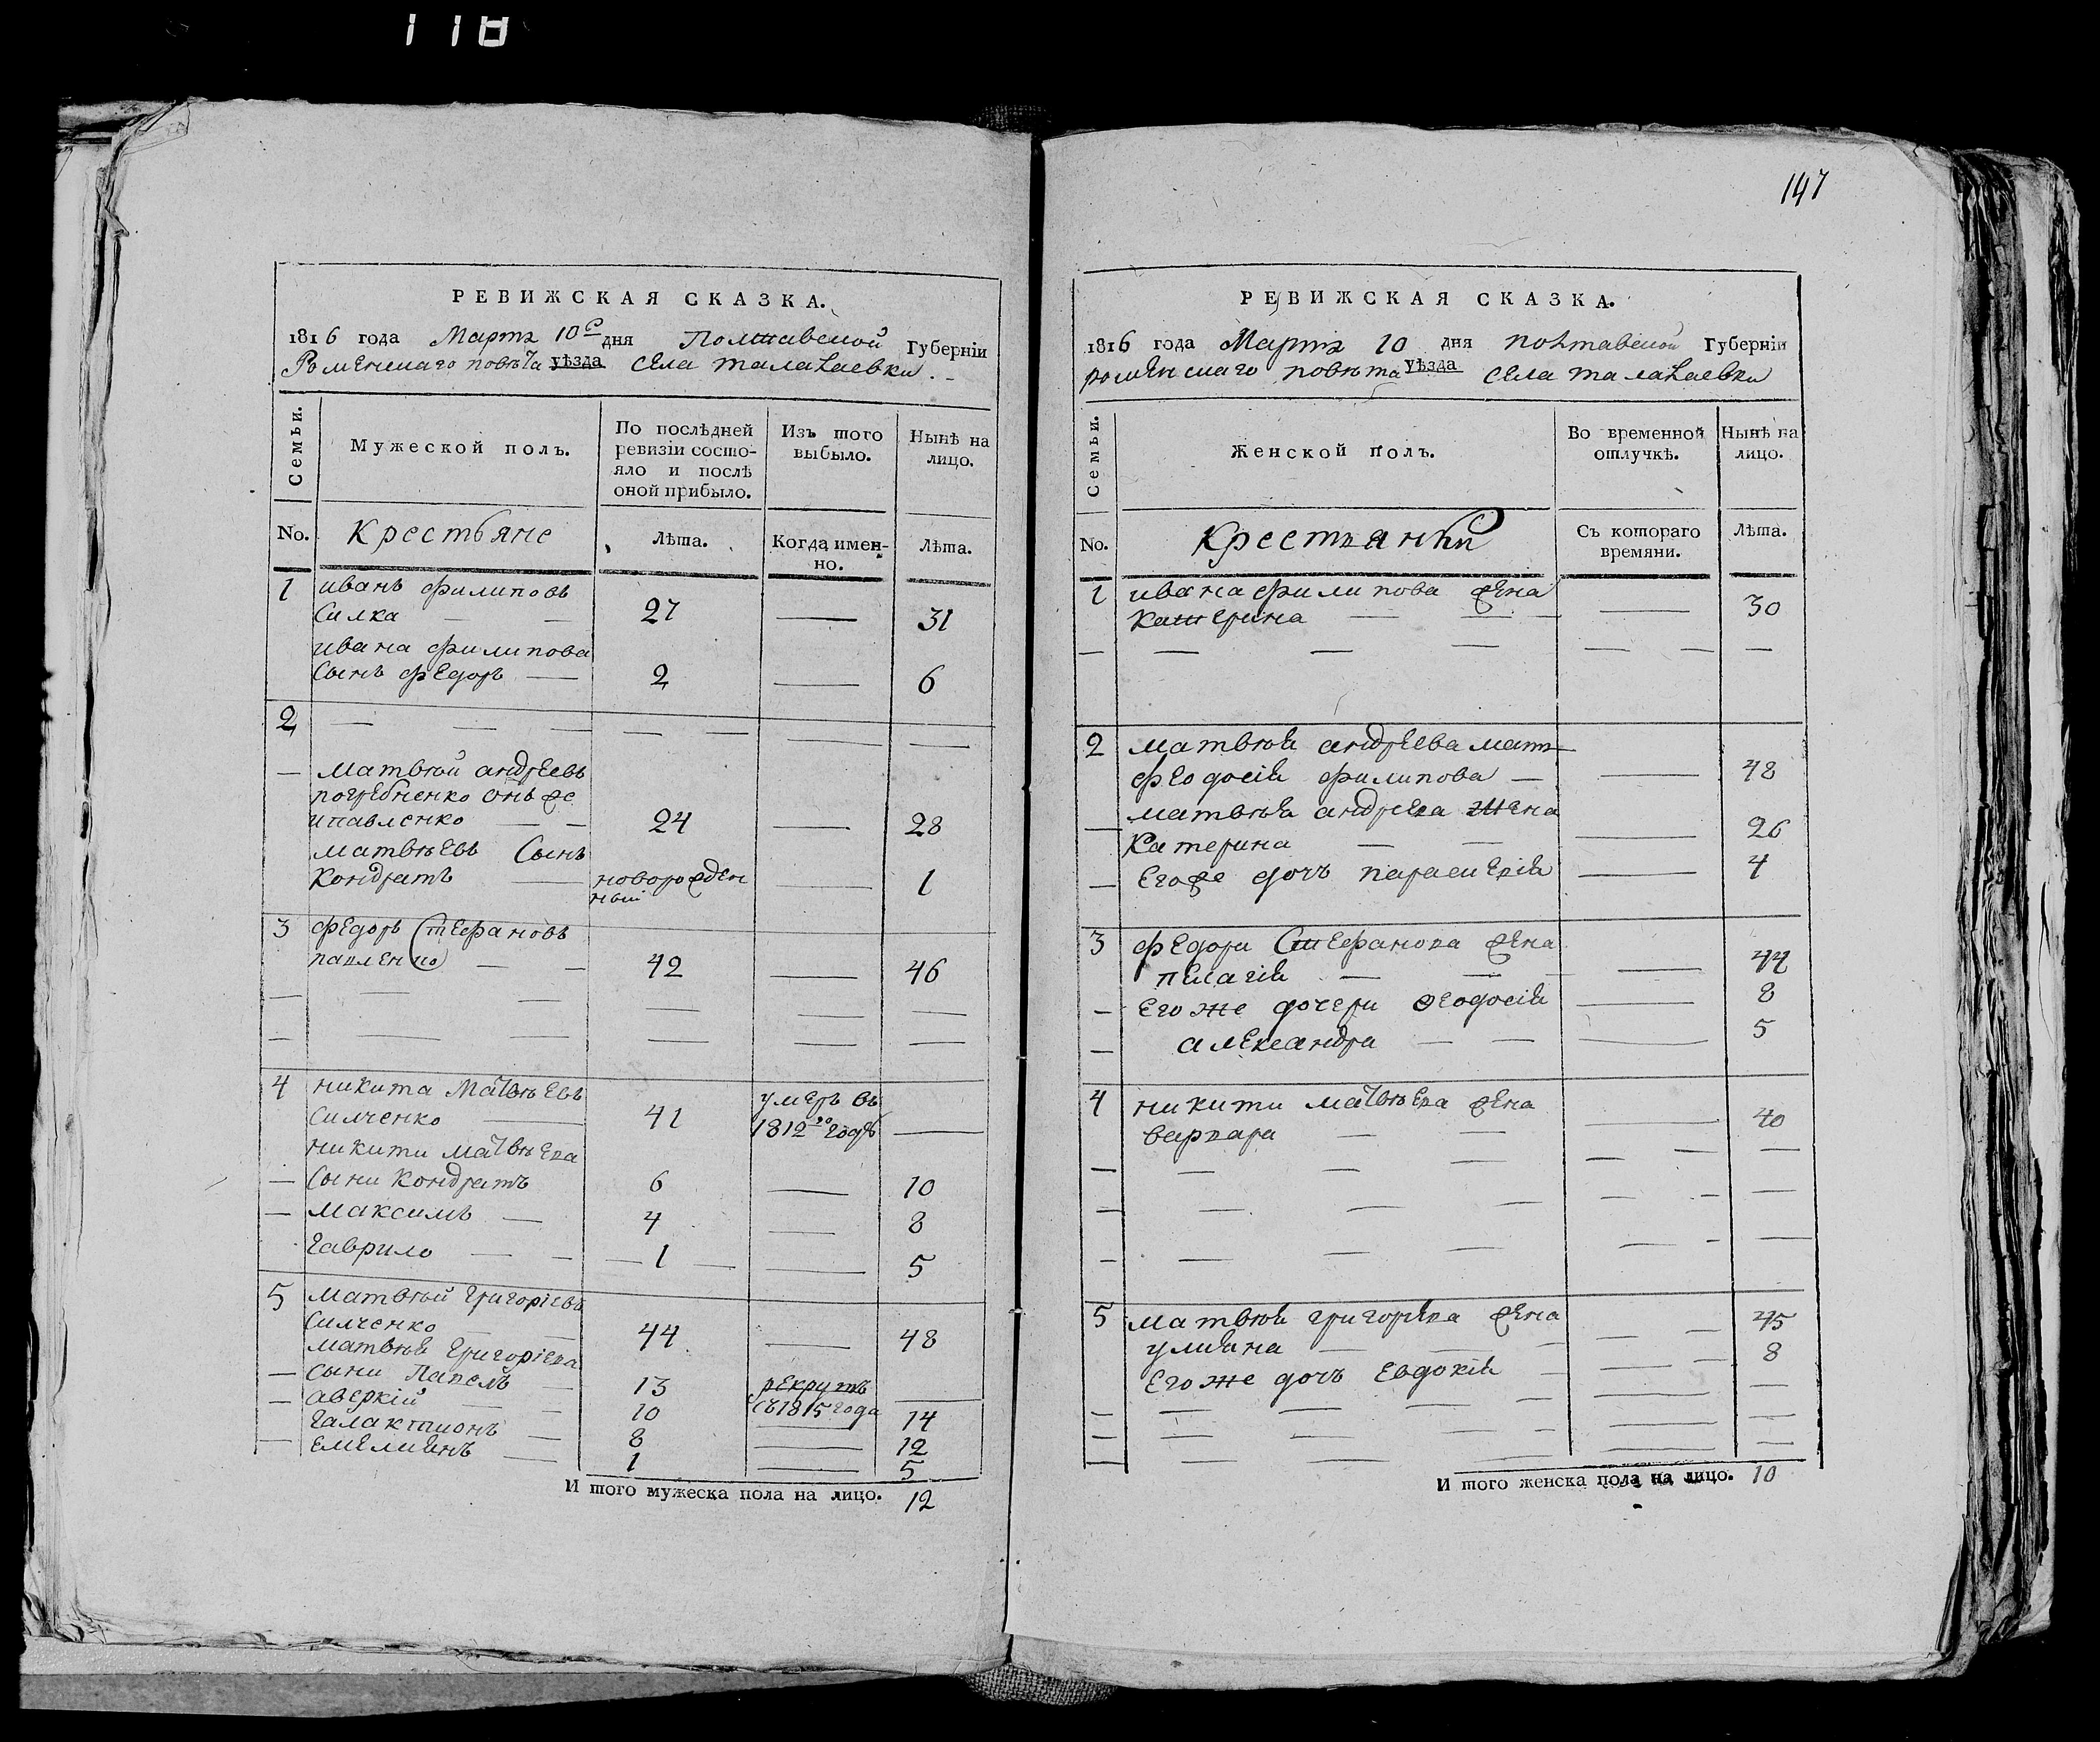 118
РЕВИЖСКАЯ СКАЗКА.
1816 года Марта 10го дня Полтавской Губерніи
Роменскаго повѣта уѣзда села талалаевки.
Семьи.
Мужеской полъ.
По послѣдней ревизіи состо-
яло и послѣ
оной прибыло.
Изъ того
выбыло.
Нынѣ на
лицо.
No.
Крестьяне
Лѣта.
Когда имен-
но.
Лѣта.
1 иванъ филиповъ
Силка 27 31
ивана филипова
Сынъ федоръ 2 6
2
матвѣй андреевъ
погребненко онъ же
и павленко 24 28
матвѣевъ Сынъ
Кондратъ новорожден
ный 1
3 федоръ Стефановъ
павленко 42 46
4 никита матвѣевъ
Силченко 41 умеръ въ
1812го годѣ
никити матвѣева
Сыни Кондратъ 6 10
максимъ 4 8
гаврило 1 5
5 матвѣй григоріевъ
Силченко 44 48
матвѣя григоріева
сыни Павелъ 13 рекрутъ
съ 1815 года
аверкій 10 14
галактионъ 8 12
емелиянъ 1 5
И того мужеска пола на лицо. 12
147
РЕВИЖСКАЯ СКАЗКА.
1816 года Марта 10 дня полтавской Губерніи
роменскаго повѣта уѣзда села талалаевки
Семьи.
Женской полъ.
Во временной
отлучкѣ.
Нынѣ на
лицо.
No.
Крестьянки
Съ котораго
времяни.
Лѣта.
1 ивана филипова жена
Катерина 30
2 матвѣя андреева мать
феодосія филипова 48
матвѣя андреева жена
Катерина 26
его же дочъ параскевія 4
3 федора Стефанова жена
пелагія 44
его же дочери феодосія 8
александра 5
4 никити матвѣева жена
варвара 40
5 матвѣя григорева жена 45
улияна
его же дочъ евдокія 8
И того женска пола на лицо. 10